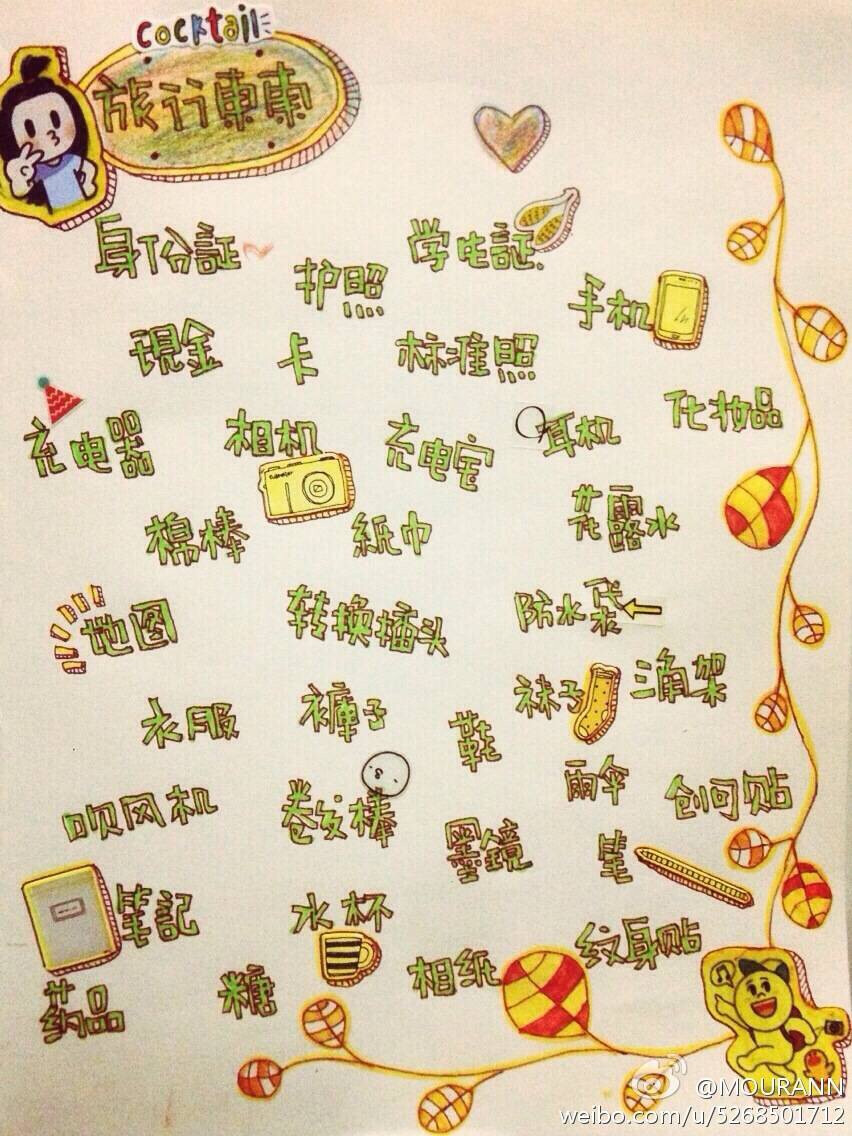 cocktail
旅行東東
身份証 学生証.
护照 手机
現金 卡 标准照
充电器 相机 充电宝 耳机 化妆品
棉棒 紙巾 花露水
地图 转换插头 防水袋
衣服 裤子 鞋 袜子 三角架
吹风机 卷发棒 雨伞 创可贴
墨鏡 笔
笔記 水杯
药品 糖 相纸 纹身贴
@MOURANN
weibo.com/u/5268501712